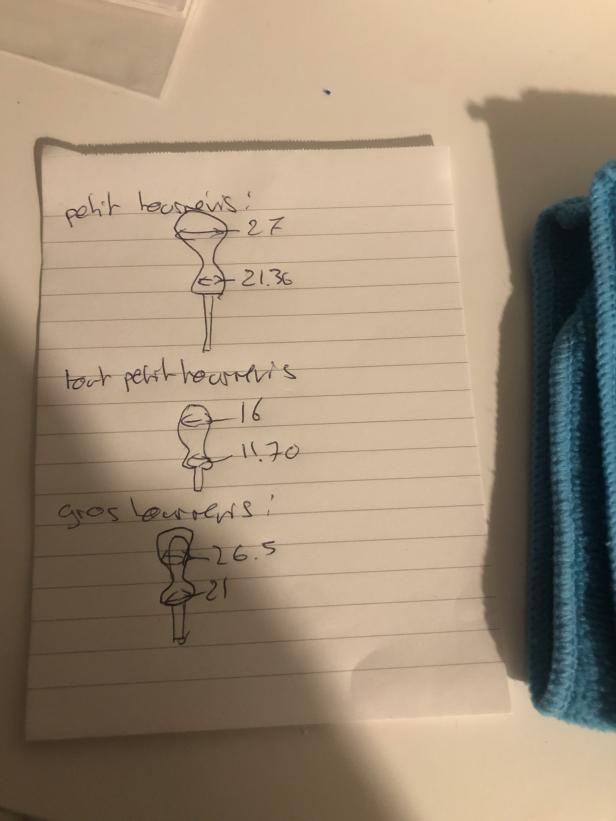 petit tournevis :
27
21.36
tout petit tournevis
16
11.70
gros tournevis :
26.5
21